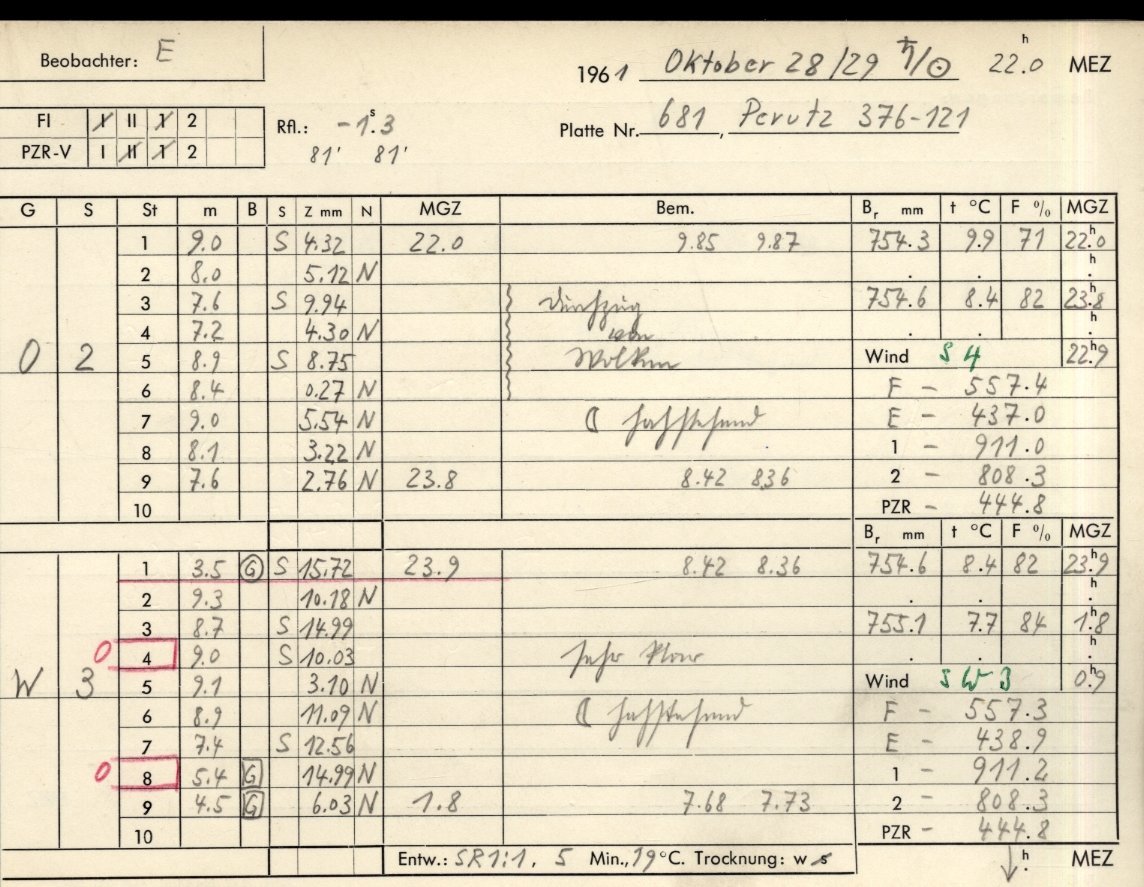 Beobachter: E
1961 Oktober 28/29 ♄/☉ 22.0 h MEZ
FI I II 1 2 Rfl.: -1.s3 Platte Nr. 681, Perutz 376-121
PZR-V I II 1 2 81' 81'
G S St m B S Z mm N MGZ Bem. Br mm t °C F % MGZ
1 9.0 S 4.32 22.0 9.85 9.87 754.3 9.9 71 22.h0
2 8.0 5.12 N . . h.
3 7.6 S 9.94 Durchzug 754.6 8.4 82 23.h8
4 7.2 4.30 N von . . h.
O 2 5 8.9 S 8.75 Wolken Wind S 4 22.h9
6 8.4 0.27 N F - 557.4
7 9.0 5.54 N ☾ E - 437.0
8 8.1 3.22 N 1 - 911.0
9 7.6 2.76 N 23.8 8.42 8.36 2 - 808.3
10 PZR - 444.8
Br mm t °C F % MGZ
1 3.5 G S 15.72 23.9 8.42 8.36 754.6 8.4 82 23.h9
2 9.3 10.18 N . . h.
3 8.7 S 14.99 755.1 7.7 84 1.h8
0 4 9.0 S 10.03 sehr klar . . h.
W 3 5 9.1 3.10 N Wind SW 3 0.h9
6 8.9 11.09 N ☾ F - 557.3
7 7.4 S 12.56 E - 438.9
0 8 5.4 G 14.99 N 1 - 911.2
9 4.5 G 6.03 N 1.8 7.68 7.73 2 - 808.3
10 PZR - 444.8
Entw.: SR 1:1, 5 Min., 19 °C. Trocknung: w s h. MEZ